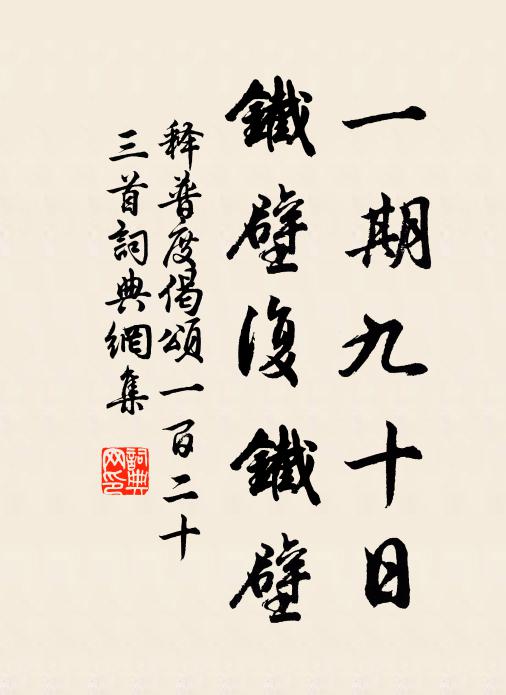 一期九十日
鐵壁復鐵壁
释普度偈頌一百二十
三首詞典網集
詞典网印